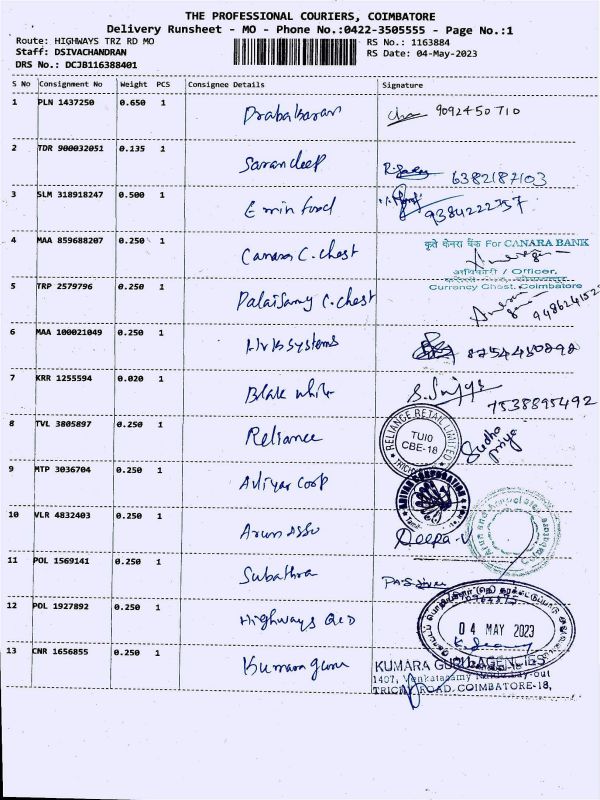 THE PROFESSIONAL COURIERS, COIMBATORE
Delivery Runsheet - MO - Phone No.:0422-3505555 - Page No.:1
Route: HIGHWAYS TRZ RD MO
RS No.: 1163884
Staff: DSIVACHANDRAN
RS Date: 04-May-2023
DRS No.: DCJB116388401
S No Consignment No Weight PCS Consignee Details Signature
1 PLN 1437250 0.650 1 Prabakaran 9092450710
2 TDR 900032051 0.135 1 Sarandeep 6382187103
3 SLM 318918247 0.500 1 Emin food 9384222757
4 MAA 859688207 0.250 1 Canara C. chest
कृते केनरा बैंक For CANARA BANK
अधिकारी / Officer,
Currency Chest, Coimbatore
5 TRP 2579796 0.250 1 Palaisamy C. chest
6 MAA 100021049 0.250 1 systems 8754450898
7 KRR 1255594 0.020 1 Blak white 7538895492
8 TVL 3805897 0.250 1 Reliance
RELIANCE RETAIL LIMITED
TUI0
CBE-18
Sudha
priya
9 MTP 3036704 0.250 1 Aliyar Coop
10 VLR 4832403 0.250 1 Arun Asso Deepa.V
Arun and Associates
Coimbatore
11 POL 1569141 0.250 1 Subathra
12 POL 1927892 0.250 1 Highways
04 MAY 2023
13 CNR 1656855 0.250 1 Kumara guru
KUMARA GURU AGENCIES
1407, Venkatasamy Naidu Lay-out
TRICHY ROAD, COIMBATORE-18,